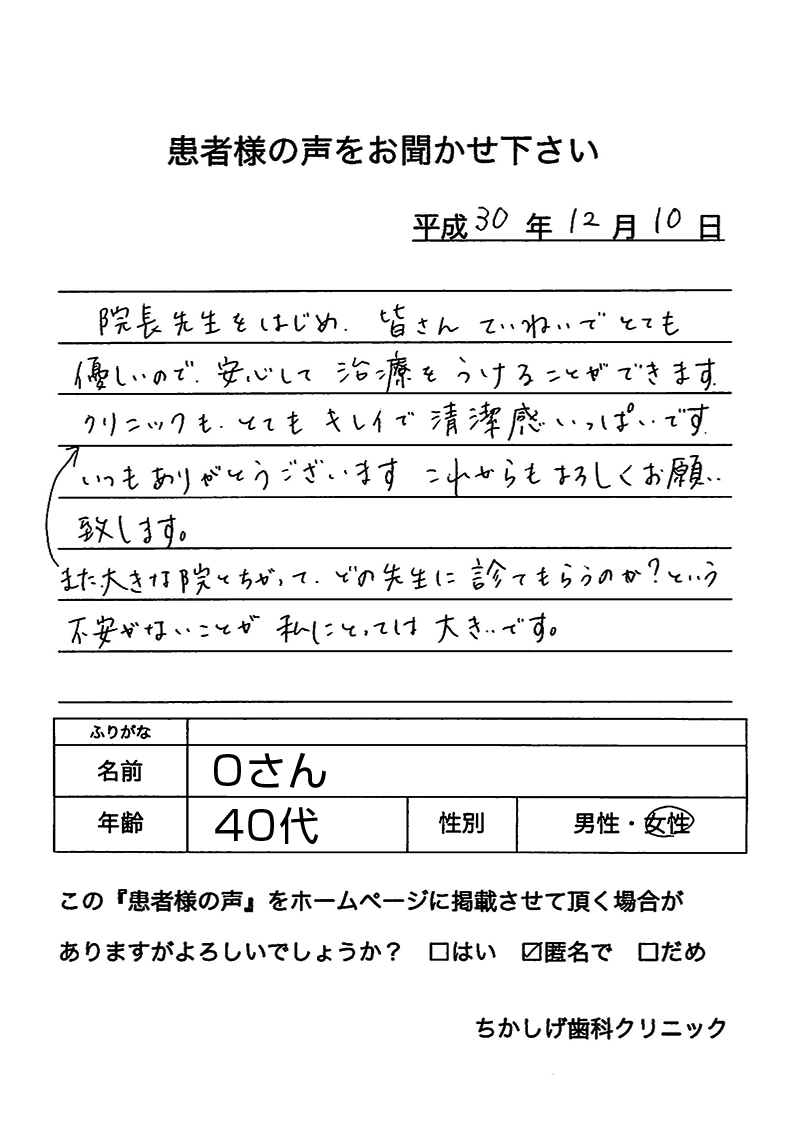 患者様の声をお聞かせ下さい
平成30年12月10日
院長先生をはじめ、皆さんていねいでとても
優しいので、安心して治療をうけることができます。
クリニックも、とてもキレイで清潔感いっぱいです。
いつもありがとうございます これからもよろしくお願い
致します。
また大きな院とちがって、どの先生に診てもらうのか?という
不安がないことが私にとっては大きいです。
ふりがな
名前 Oさん
年齢 40代 性別 男性・女性
この『患者様の声』をホームページに掲載させて頂く場合が
ありますがよろしいでしょうか? □はい ☑匿名で □だめ
ちかしげ歯科クリニック